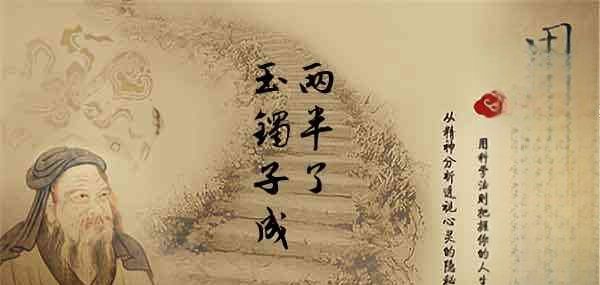 玉镯子成
两半了
用科学法则把握你的人生
从精神分析透视心灵的隐秘